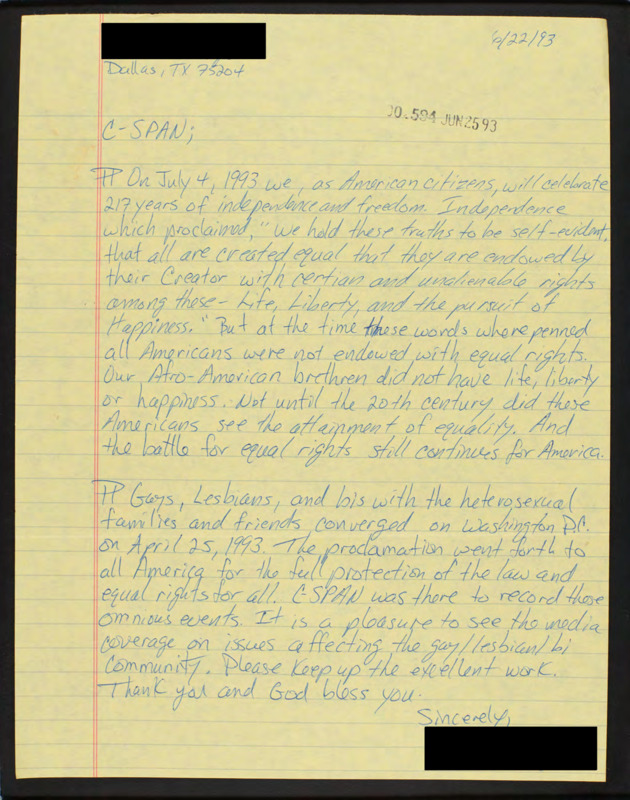 6/22/93
Dallas, TX 75204
JUN 25 93
C-SPAN;
On July 4, 1993 we, as American citizens, will celebrate
217 years of independence and freedom. Independence
which proclaimed, "we hold these truths to be self-evident,
that all are created equal that they are endowed by
their Creator with certian and unalienable rights
among these - Life, Liberty, and the pursuit of
Happiness." But at the time these words where penned
all Americans were not endowed with equal rights.
Our Afro-American brethren did not have life, liberty
or happiness. Not until the 20th century did these
Americans see the attainment of equality. And
the battle for equal rights still continues for America.
Gays, Lesbians, and bis with the heterosexual
families and friends converged on Washington D.C.
on April 25, 1993. The proclamation went forth to
all America for the full protection of the law and
equal rights for all. C-SPAN was there to record those
omnious events. It is a pleasure to see the media
coverage on issues affecting the gay/lesbian/bi
Community. Please keep up the excellent work.
Thank you and God bless you.
Sincerely,